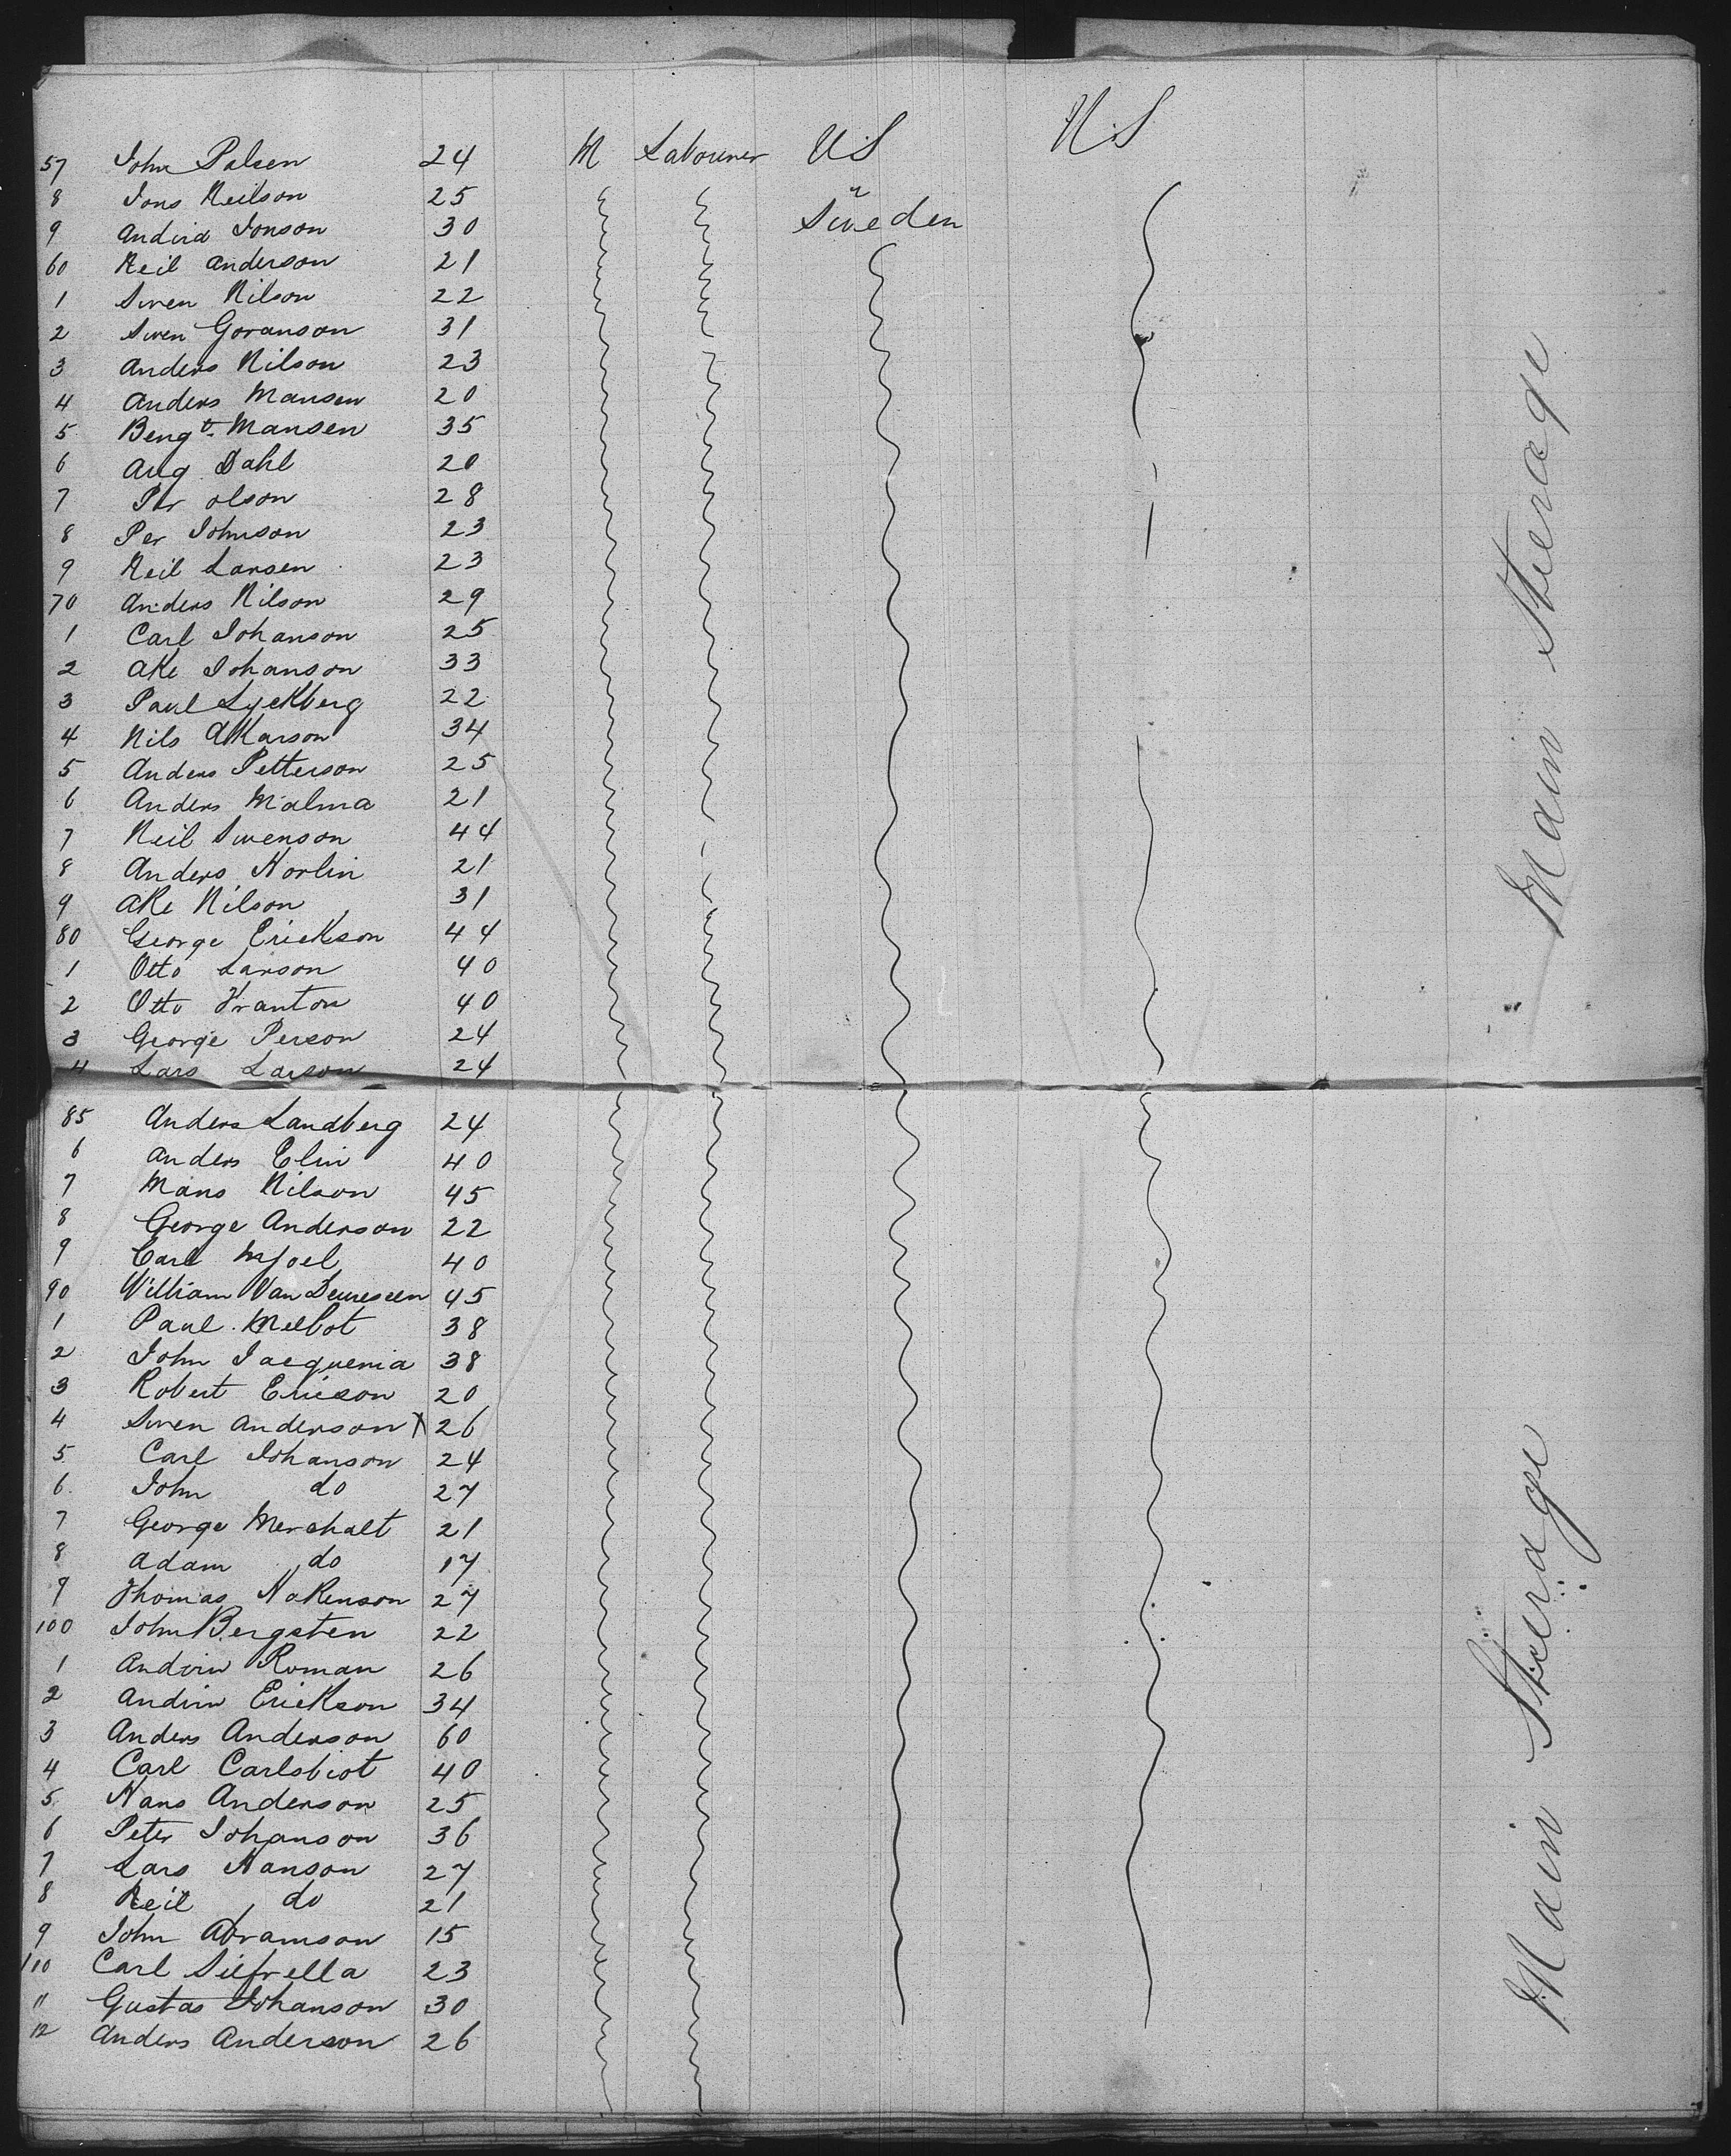 57 John Palsen 24 M Labourer US U.S
8 Jons Neilson 25 "
9 Andira Jonson 30 Sweden
60 Neil Anderson 21
1 Swen Nilson 22
2 Swen Goranson 31
3 Anders Nilson 23
4 Anders Mansen 20
5 Bengt Mansen 35
6 Aug Dahl 20
7 Per Olson 28
8 Per Johnson 23
9 Neil Larsen 23
70 Anders Nilson 29
1 Carl Johanson 25
2 Ake Johanson 33
3 Paul Lyckberg 22
4 Nils Akarson 34
5 Anders Petterson 25
6 Anders Malma 21
7 Neil Swenson 44
8 Anders Norlin 21
9 Ake Nilson 31
80 George Erickson 44
1 Otto Larson 40
2 Otto Franton 40
3 George Person 24
4 Lars Larson 24
Main Steerage
85 Anders Landberg 24
6 Anders Elin 40
7 Mans Nilson 45
8 George Anderson 22
9 Carl Mjoel 40
90 William Van 45
1 Paul Melbot 38
2 John Jacquenia 38
3 Robert Ericson 20
4 Swen Anderson X 26
5 Carl Johanson 24
6 John do 27
7 George Mershalt 21
8 Adam do 17
9 Thomas Hakenson 27
100 John Bergsten 22
1 Andrew Roman 26
2 Andrew Erickson 34
3 Anders Anderson 60
4 Carl 40
5 Hans Anderson 25
6 Peter Johanson 36
7 Lars Hanson 27
8 Neil do 21
9 John Abramson 15
110 Carl 23
11 Gustas Johanson 30
12 Anders Anderson 26
Main Steerage